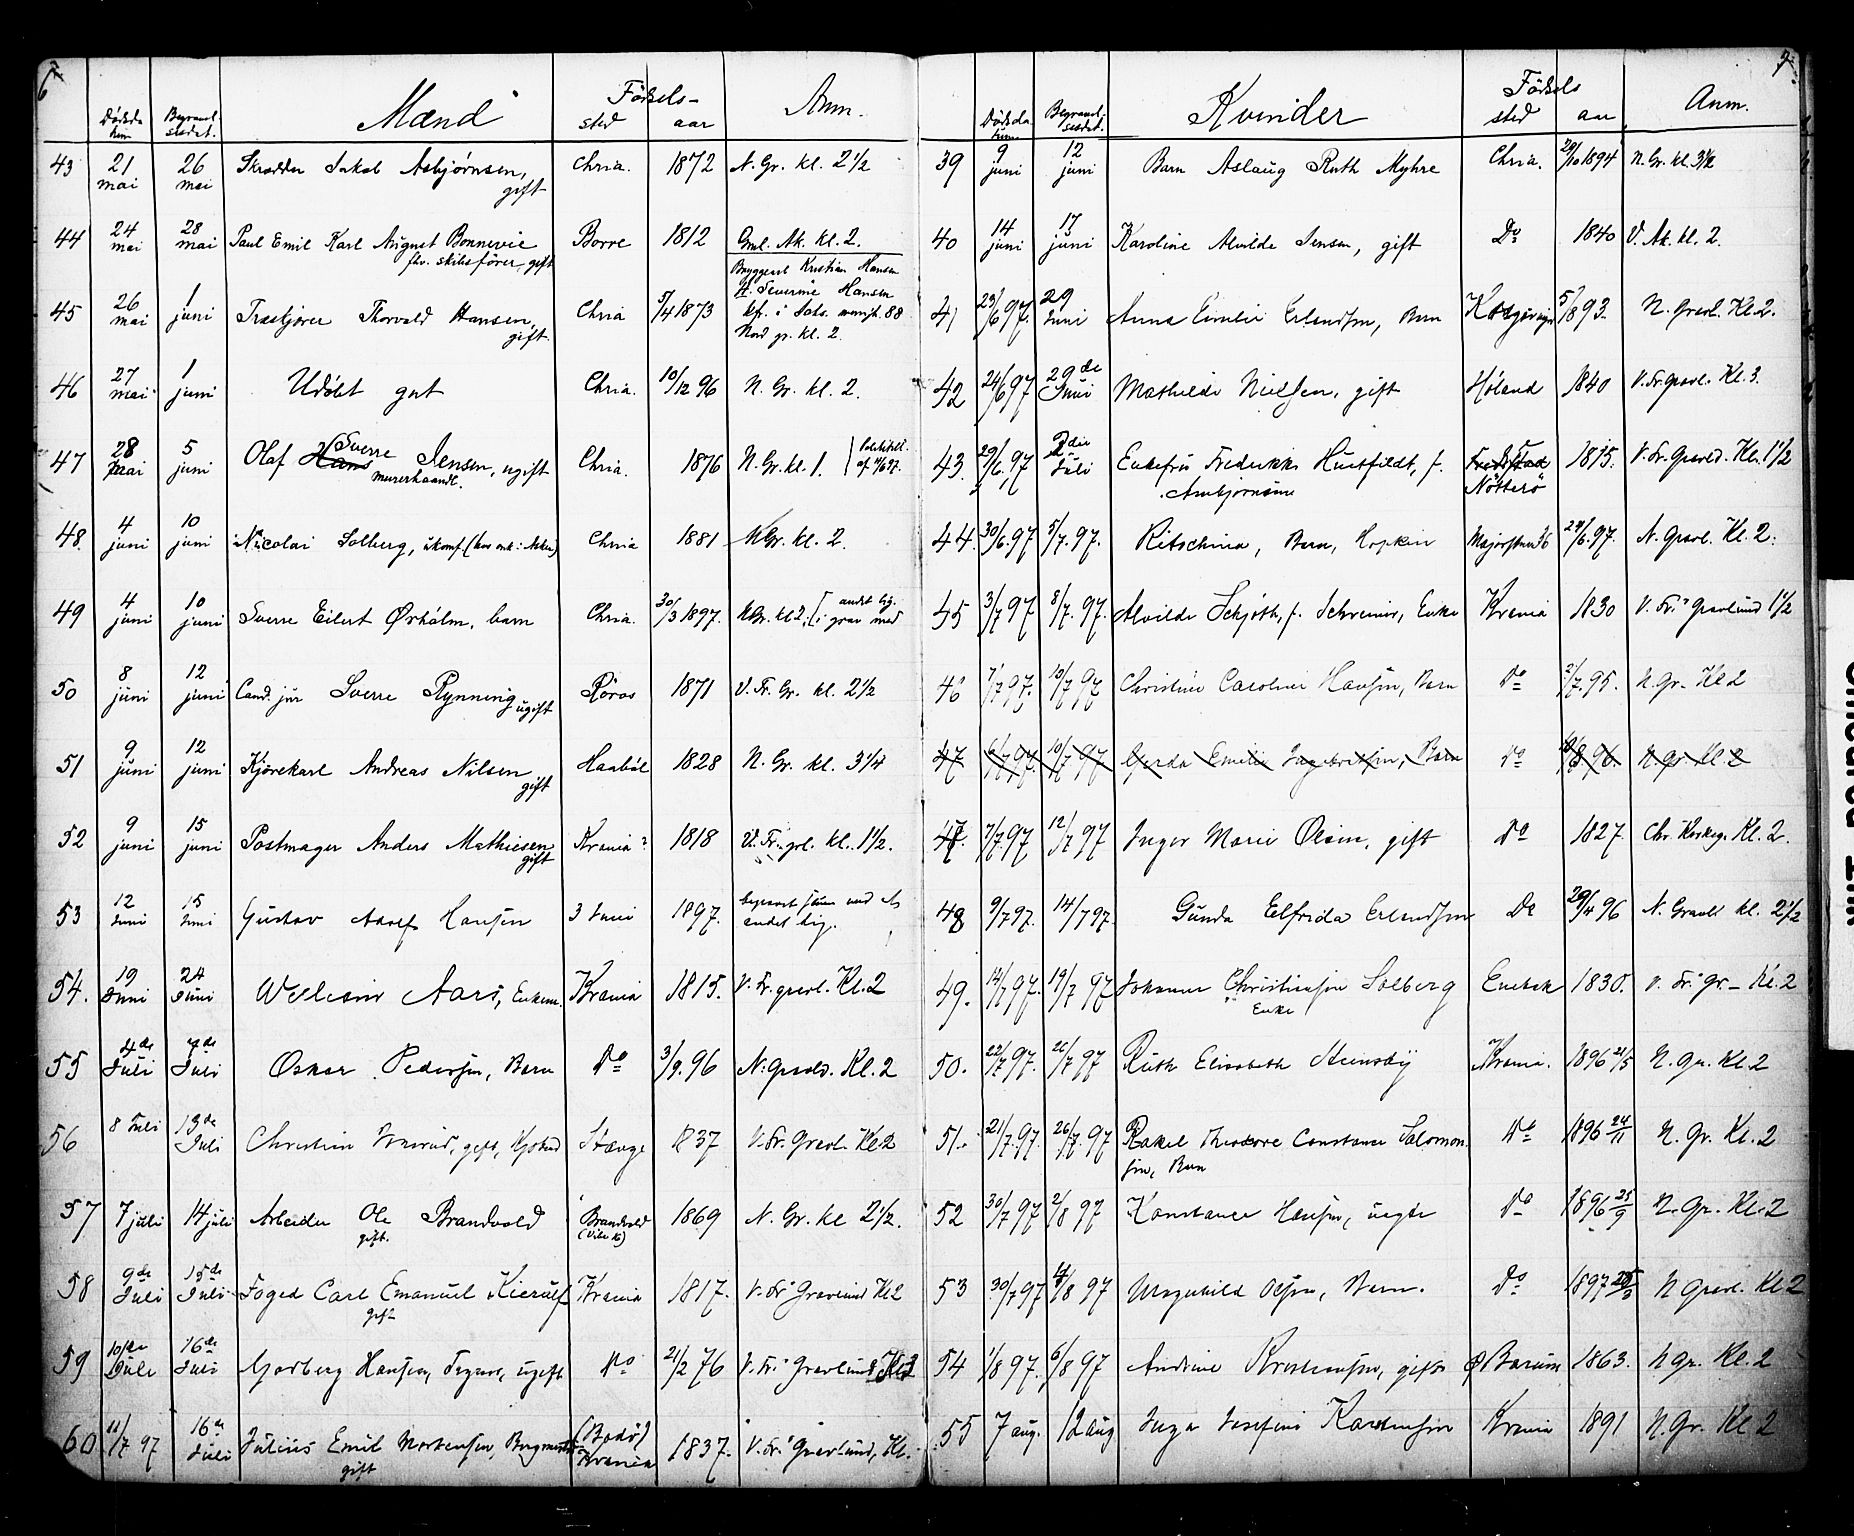 6
Mænd
Fødsels-
Anm.
Dødsda
tum
Begravel
sesdat.
sted aar
43 21 mai 26 mai Skrædder Jakob Asbjørnsen, gift Chria. 1872 N. Gr. kl. 2½
44 24 mai 28 mai Paul Emil Karl August Bonnevie Borre 1812 Gml. Ak. kl. 2.
fhv. skibsfører, gift
Kristian Hansen
Severine Hansen
45 26 mai 1 juni Thorvald Hansen, gift. Chria 5/4 1873
Nord gr. kl. 2.
46 27 mai 1 juni Udøbt gut Chria. 10/12 96 N. Gr. kl. 2.
47 28 mai 5 juni Olaf Hans Sverre Jensen, ugift Chria. 1876 N. Gr. kl. 1.
murerhaandl.
48 4 juni 10 juni Nicolai Solberg, ukonf. Chria 1881 N Gr. kl. 2.
49 4 juni 10 juni Sverre Eilert Ørholm, barn Chria. 30/3 1897. N Gr. kl 2, andet lig. i grav med
50 8 juni 12 juni Cand. jur Sverre Rynning ugift Røros 1871 V. Fr. Gr. kl. 2½
51 9 juni 12 juni Kjørekarl Andreas Nilsen gift Haabøl 1828 N. Gr. kl. 3¼
52 9 juni 15 juni Postmager Anders Mathiesen gift Krania? 1818 V. Fr. grl. kl. 1½.
53 12 Juni 15 Juni Gustav Adolf Hansen 3 Juni 1897. andet lig.
54. 19 Juni 24 Juni Aars, Enkem. Krania 1815. V. Fr. gravl. Kl. 2
55 4de Juli 7de Juli Oskar Pedersen, Barn Do 3/9. 96 N. Gravl. Kl. 2
56 8 Juli 13de Juli Christian gift, Stange 1837 V. Fr. Gravl. Kl 2
57 7 juli 14 juli Arbeider Ole Brandvold gift. Brandvold 1869 N. Gr. kl 2½.
58 9de Juli 15de Juli Foged Carl Emanuel Kierulf gift Krania 1817. V. Fr. Gravlund Kl 2
59 10de Juli 16de Juli Hansen, ugift Do 21/2 76 V. Fr. Gravlund Kl 2
60 11/7 97 16de Juli Julius Emil Mortensen, gift (Bodø) Krania 1837. V. Fr. Gravlund, Kl.
7
Kvinder
Fødsels
Anm.
Dødsda
tum
Begravel
sesdat.
sted aar
39 9 juni 12 juni Barn Aslaug Ruth Myhre Chria. 29/10 1894 N. Gr. kl. 3½
40 14 juni 17 juni Karoline Alvilde Jensen, gift Do 1840 V. Ak. kl. 2.
41 23/6 97. 29 Juni Anna Emilie Erlandsen, Barn 5/8 93. N. Gravl. Kl. 2.
42 24/6 97 29de Juni Mathilde Nielsen, gift Høland 1840 V. Fr. Gravl. Kl. 3.
43. 29/6. 97 2den Juli Enkefru Fredrikke Huitfeldt, f. Fredrikstad 1815. V. Fr. Gravl. Kl. 1½
Ambjørnsen Nøtterø
44. 30/6. 97 5/7. 97. Ritschina, Barn, Hopkin Majorstuen 36 29/6. 97. N. Gravl. Kl. 2.
45 3/7 97 8/7. 97. Alvilde Schjøth, f. Schreiner, Enke Krania 1830 V. Fr. Gravlund 1½
46 7/7 97. 10/7 97 Christine Caroline Hansen, Barn Do 2/7. 95. N. Gr. Kl 2
47 6/7 97. 10/7 97 Gerda Emilie Ingebretsen, Barn Do 96. N. gr. Kl. 2
47. 7/7 97 12/7 97 Inger Marie Olsen, gift Do 1827. Chr. Kirkeg. Kl. 2.
48 9/7 97. 14/7 97. Gunda Elfrida Erlandsen Do 29/4 96 N. Gravl kl. 2½
49. 14/7 97. 19/7 97 Johanne Christiansen Solberg Enebak 1830. V. Fr. Gr. Kl. 2
Enke
50. 22/7 97. 26/7 97 Ruth Elisabeth Steensby Krania. 1896 21/5 N. Gr. Kl. 2
51. 21/7. 97. 26/7. 97 Rakel Theodore Constance Salomon- Do 1896 24/11 N. Gr. Kl. 2
sen, Barn
52 30/7 97 2/8 97 Konstance Hansen, ugift Do 1896 25/9 N. Gr. Kl. 2
53 30/7 97 8 97 Olsen, Barn. Do 1897 N Gravl. Kl 2
54 1/8 97. 6/8 97 Andrine Kristiansen, gift Ø Bærum 1863. N gr. Kl. 2
55 7 aug. 12 aug Inga Josefine Karstensen Krania 1891 N. Gr. Kl 2